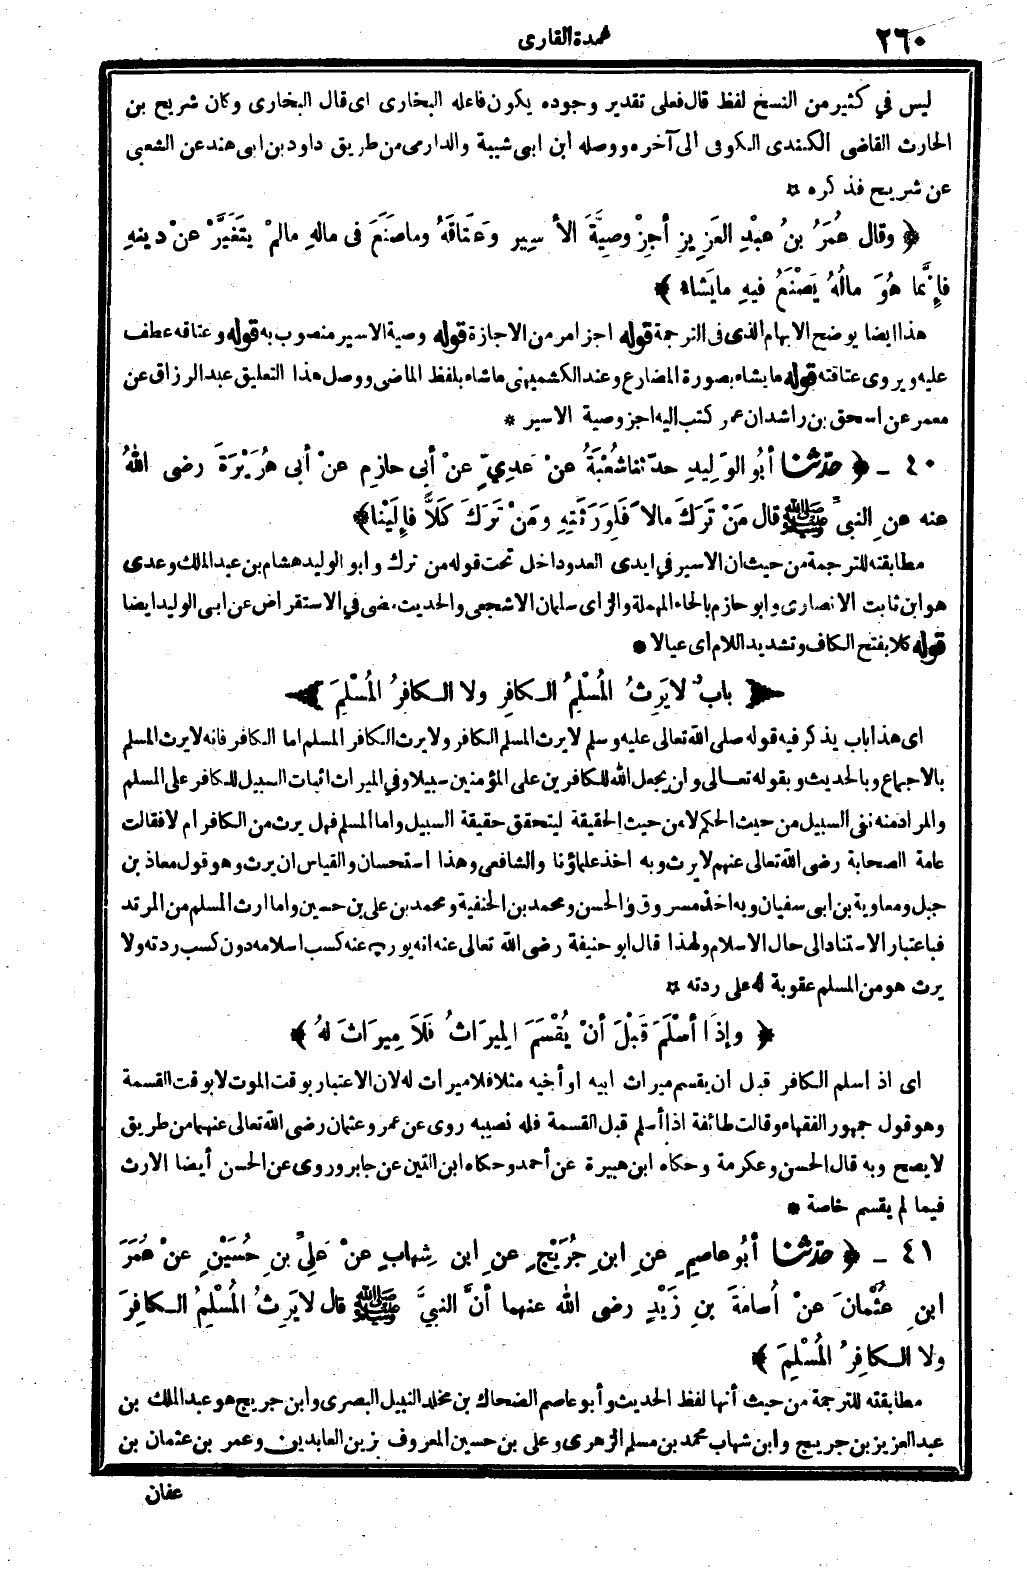 ٢٦٠
عمدة القارى
ليس في كثير من النسخ لفظ قال فعلى تقدير وجوده يكون فاعله البخارى اى قال البخارى وكان شريح بن
الحارث القاضى الكندى الكوفى الى آخره ووصله ابن ابى شيبة والدارمى من طريق داود بن ابى هند عن الشعبى
عن شريح فذكره ¤
﴿ وقال عُمَرُ بنُ عبْدِ العَزِيزِ أجِزْ وصِيَّةَ الأسِيرِ وعَتَاقَهُ وماصَنَعَ فى مالِهِ مالمْ يتَغَيَّرْ عنْ دينِهِ
فإنَّما هُوَ مالُهُ يَصْنَعُ فيهِ مايَشاءُ ﴾
هذا ايضا يوضح الابهام الذى فى الترجمة قوله اجز امر من الاجازة قوله وصية الاسير منصوب به قوله وعتاقه عطف
عليه ويروى عتاقته قوله مايشاء بصورة المضارع وعند الكشميهنى ماشاء بلفظ الماضى ووصل هذا التعليق عبدالرزاق عن
معمر عن اسحق بن راشد ان عمر كتب اليه اجز وصية الاسير *
٤٠ ـ ﴿ حدّثنا أبُو الوَلِيدِ حدّثنا شُعْبَةُ عنْ عَدِيٍّ عنْ أبي حازِمٍ عنْ أبى هُرَيْرَةَ رضى اللهُ
عنه عنِ النبيِّ ﷺ قال مَنْ تَرَكَ مالاً فَلِوَرَثَتِهِ ومَنْ تَرَكَ كَلاًّ فإلَيْنا﴾
مطابقته للترجمة من حيث ان الاسير في ايدى العدو داخل تحت قوله من ترك وابو الوليد هشام بن عبدالملك وعدى
هو ابن ثابت الانصارى وابو حازم بالحاء المهملة والزاى سلمان الاشجعى والحديث مضى في الاستقراض عن ابى الوليد ايضا
قوله كلا بفتح الكاف وتشديد اللام اى عيالا *
﴿ بابٌ لا يَرِثُ المُسْلِمُ الكافِرَ ولا الكافِرُ المُسْلِمَ ﴾
اى هذا باب يذكر فيه قوله صلى الله تعالى عليه وسلم لا يرث المسلم الكافر ولا يرث الكافر المسلم اما الكافر فانه لا يرث المسلم
بالاجماع وبالحديث وبقوله تعالى ولن يجعل الله للكافرين على المؤمنين سبيلا وفي الميراث اثبات السبيل للكافر على المسلم
والمراد منه نفى السبيل من حيث الحكم لا من حيث الحقيقة ليتحقق حقيقة السبيل واما المسلم فهل يرث من الكافر ام لا فقالت
عامة الصحابة رضى الله تعالى عنهم لا يرث وبه اخذ علماؤنا والشافعى وهذا استحسان والقياس ان يرث وهو قول معاذ بن
جبل ومعاوية بن ابى سفيان وبه اخذ مسروق والحسن ومحمد بن الحنفية ومحمد بن على بن حسين واما ارث المسلم من المرتد
فباعتبار الاستناد الى حال الاسلام ولهذا قال ابو حنيفة رضى الله تعالى عنه انه يورث عنه كسب اسلامه دون كسب ردته ولا
يرث هو من المسلم عقوبة له على ردته ¤
﴿ وإذَا أسْلَمَ قَبْلَ أنْ يُقْسَمَ المِيرَاثُ فَلاَ مِيرَاثَ لهُ ﴾
اى اذ اسلم الكافر قبل ان يقسم ميراث ابيه او أخيه مثلا فلا ميراث له لان الاعتبار بوقت الموت لا بوقت القسمة
وهو قول جمهور الفقهاء وقالت طائفة اذا أسلم قبل القسمة فله نصيبه روى عن عمر وعثمان رضى الله تعالى عنهما من طريق
لا يصح وبه قال الحسن وعكرمة وحكاه ابن هبيرة عن أحمد وحكاه ابن التين عن جابر وروى عن الحسن أيضا الارث
فيما لم يقسم خاصة *
٤١ ـ ﴿ حدّثنا أبُو عاصِمٍ عنِ ابنِ جُرَيْجٍ عنِ ابنِ شِهابٍ عنْ عَلِيِّ بنِ حُسَيْنٍ عنْ عُمَرَ
ابنِ عُثْمانَ عنْ أُسامَةَ بنِ زَيْدٍ رضى الله عنهما أنَّ النبيَّ ﷺ قال لا يَرِثُ المُسْلِمُ الكافِرَ
ولا الكافِرُ المُسْلِمَ ﴾
مطابقته للترجمة من حيث أنها لفظ الحديث وأبو عاصم الضحاك بن مخلد النبيل البصرى وابن جريج هو عبدالملك بن
عبدالعزيز بن جريج وابن شهاب محمد بن مسلم الزهرى وعلى بن حسين المعروف بزين العابدين وعمر بن عثمان بن
عفان